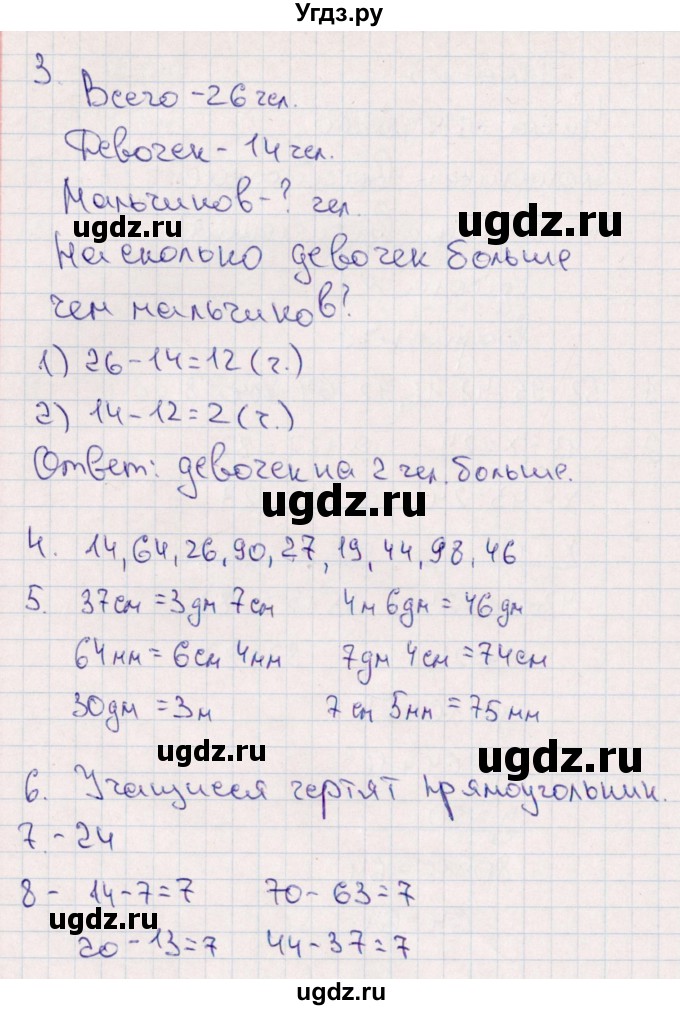 Угдз.ру
3.
Всего - 26 чел.
Девочек - 14 чел.
Мальчиков - ? чел.
ugdz.ru ugdz.ru
На сколько девочек больше
чем мальчиков?
1) 26 - 14 = 12 (ч.)
2) 14 - 12 = 2 (ч.)
Ответ: девочек на 2 чел. больше.
ugdz.ru
4. 14, 64, 26, 90, 27, 19, 44, 98, 46
5. 37 см = 3 дм 7 см 4 м 6 дм = 46 дм
64 мм = 6 см 4 мм 7 дм 4 см = 74 см
30 дм = 3 м 7 см 5 мм = 75 мм
ugdz.ru ugdz.ru
6. Учащиеся чертят прямоугольник.
7. - 24
8 - 14 - 7 = 7 70 - 63 = 7
ugdz.ru
20 - 13 = 7 44 - 37 = 7
ugdz.ru